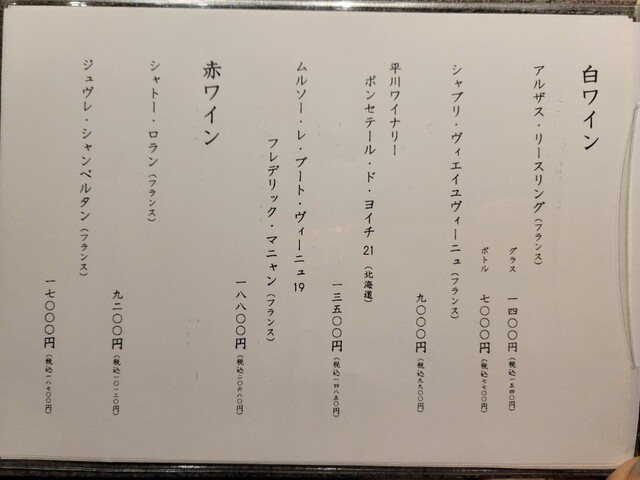 白ワイン
アルザス・リースリング(フランス)
グラス 一四〇〇円(税込一五四〇円)
ボトル 七〇〇〇円(税込七七〇〇円)
シャブリ・ヴィエイユヴィーニュ(フランス)
九〇〇〇円(税込九九〇〇円)
平川ワイナリー
ポンセテール・ド・ヨイチ21(北海道)
一三五〇〇円(税込一四八五〇円)
ムルソー・レ・プート・ヴィーニュ19
フレデリック・マニャン(フランス)
一八八〇〇円(税込二〇六八〇円)
赤ワイン
シャトー・ロラン(フランス)
九二〇〇円(税込一〇一二〇円)
ジュヴレ・シャンベルタン(フランス)
一七〇〇〇円(税込一八七〇〇円)